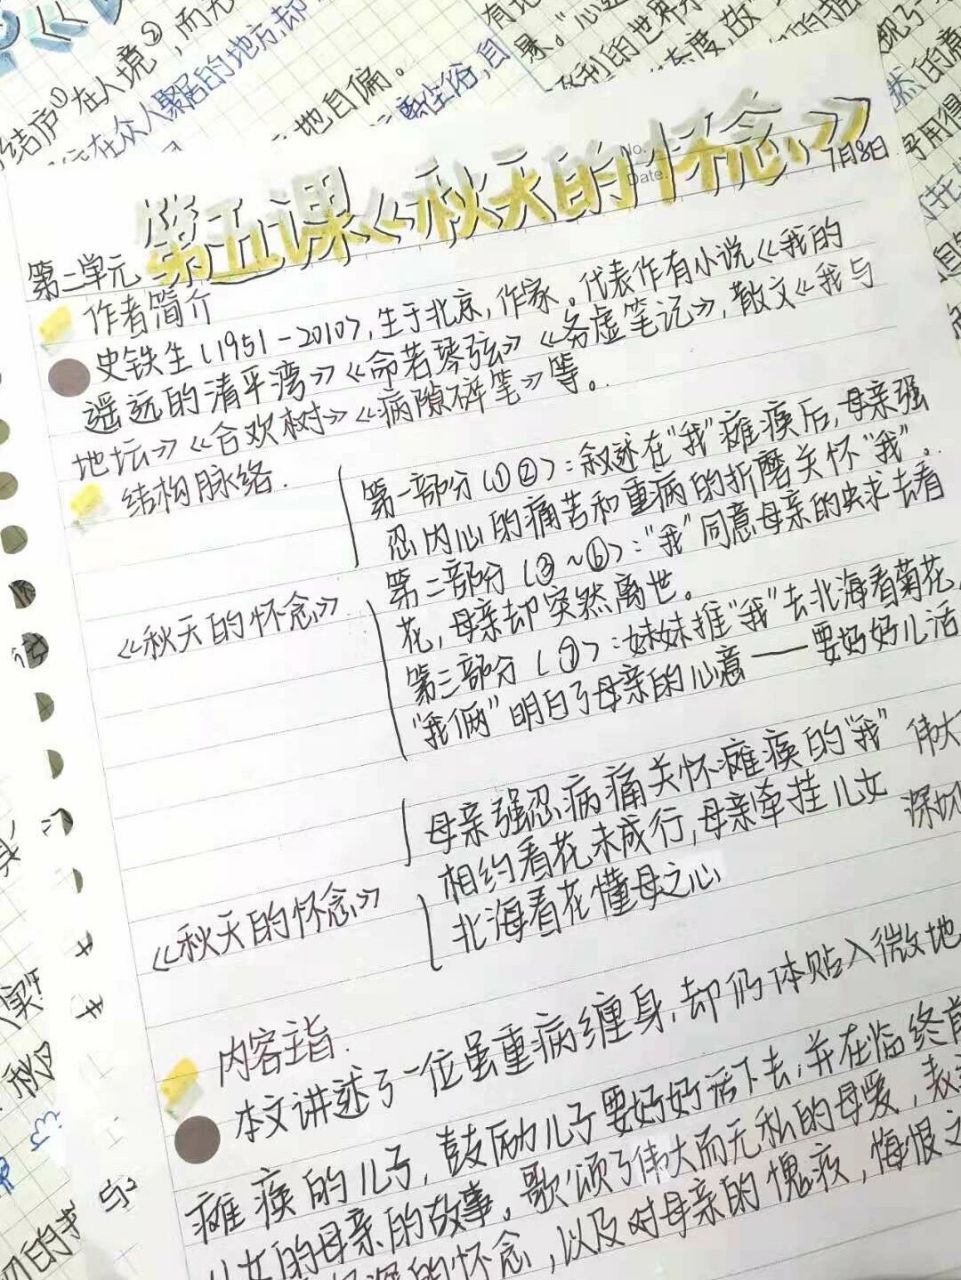 结庐①在人境②,而无
在众人聚居的地方,却
地自偏。
第五课《秋天的怀念》
No.
Date.
7月8日
第二单元
作者简介
史铁生(1951-2010),生于北京,作家。代表作有小说《我的
遥远的清平湾》《命若琴弦》《务虚笔记》,散文《我与
地坛》《合欢树》《病隙碎笔》等。
结构脉络.
《秋天的怀念》
第一部分(①②):叙述在“我”瘫痪后,母亲强
忍内心的痛苦和重病的折磨关怀“我”.
第二部分(③~⑥):“我”同意母亲的央求去看
花,母亲却突然离世。
第三部分(⑦):妹妹推“我”去北海看菊花,
“我俩”明白了母亲的心意——要好好儿活
《秋天的怀念》
母亲强忍病痛关怀瘫痪的“我”
相约看花未成行,母亲牵挂儿女
北海看花懂母之心
伟大
深切
内容主旨.
本文讲述了一位虽重病缠身,却仍体贴入微地
瘫痪的儿子,鼓励儿子要好好活下去,并在临终前
儿女的母亲的故事。歌颂了伟大而无私的母爱,表
的怀念,以及对母亲的愧疚,悔恨之